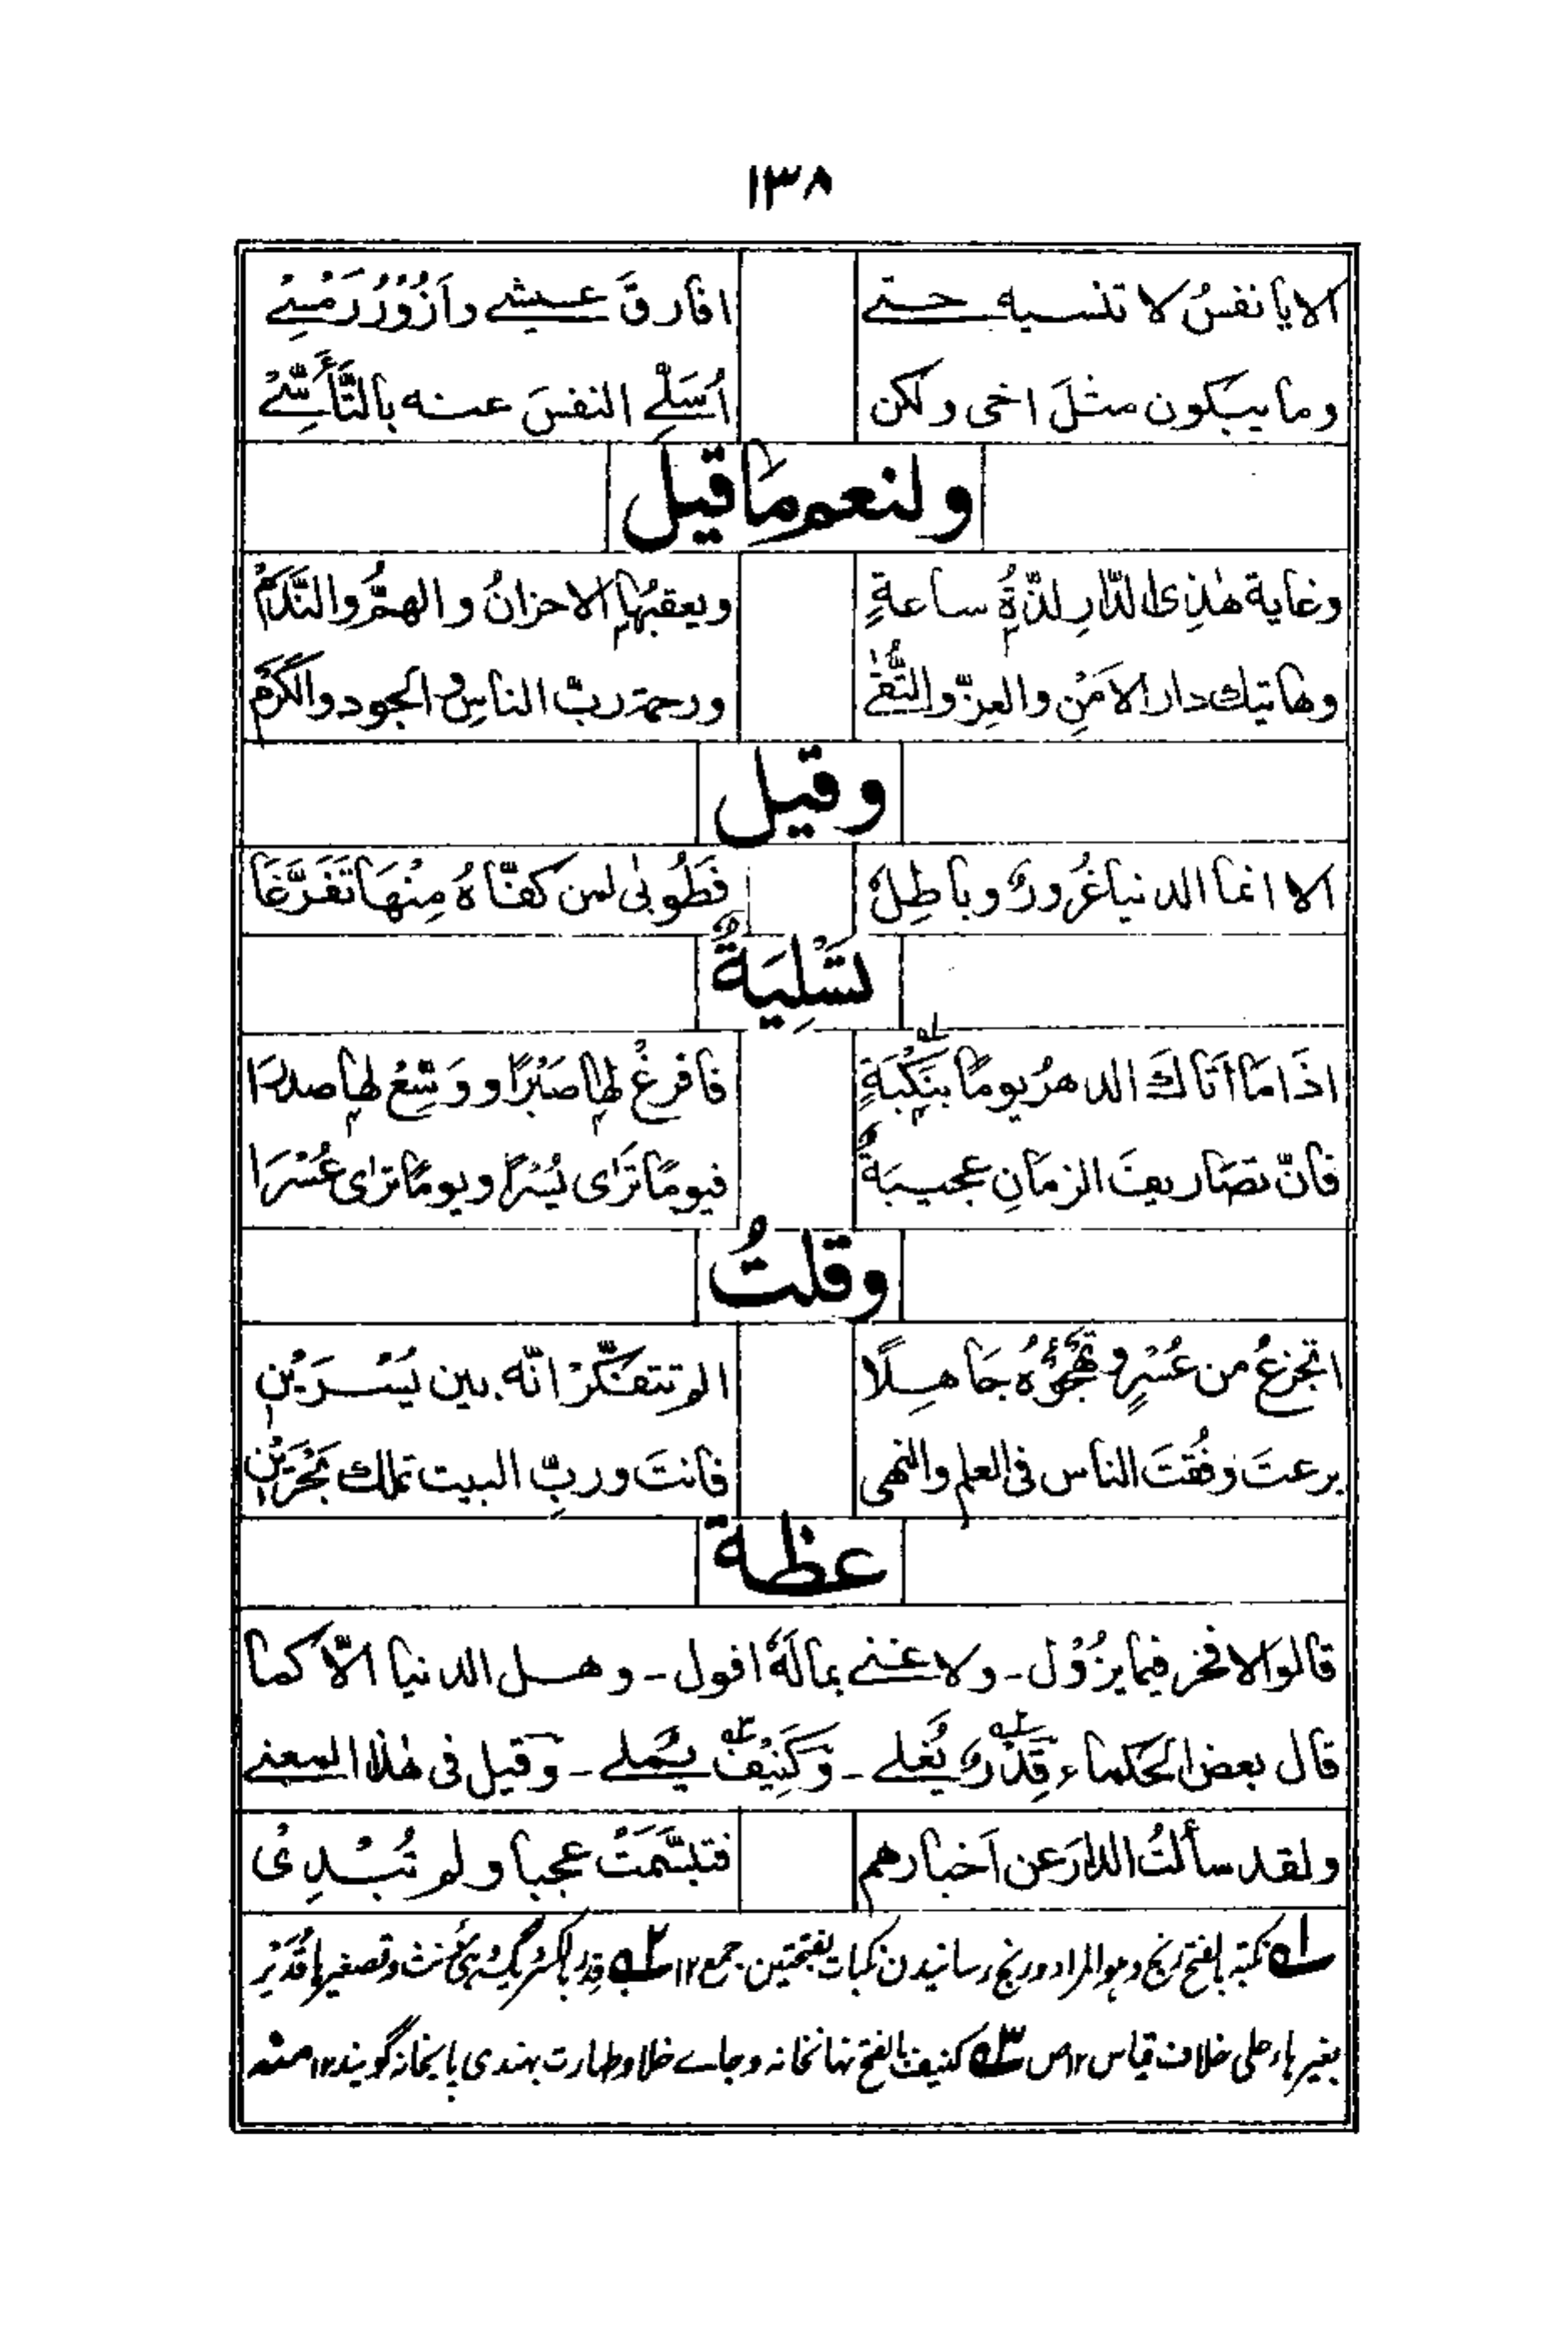 ١٣٨
الا يا نفسُ لا تنسيه حتے افارقَ عيشے وَاَزُوْرُ رَمْسِیْ
وما يبكون مثلَ اخى ولكن اُسَلِّے النفسَ عنه بالتَّأَسِّیْ
ولنعم مَا قيل
وغاية هٰذِى الدّارِ لذّةُ ساعةٍ ويعقبُها الاحزانُ والهمُّ والنَّدَمُ
وهاتيك دار الامَنِ والعِزّ والتُّقٰے ورحمة ربّ الناسِ والجود والكَرَمُ
وقيل
الا انما الدنيا غُرورٌ وباطِلٌ فَطُوبٰى لمن كفّاهُ مِنْهَا تَفَرَّغَا
تَسْلِيَةٌ
اذَا مَا اَتَاكَ الدهرُ يومًا بنَكْبَةٍ ١ فافرغْ لها صَبْرًا ووَسِّعْ لها صدرَا
فانّ تصَاريفَ الزمانِ عجيبَةٌ فيومًا تَرٰى يُسْرًا ويومًا ترٰى عُسْرَا
وقلتُ
اتجزعُ من عُسْرٍ وتَهْجُوُهُ جَاهِلًا الم تتفكّرْ انّه بين يُسْرَيْنِ
برعتَ وفُقتَ الناس فى العلم والنهى فانتَ وربِّ البيت تملك بَحْرَيْنِ
عظة
قالوا لا فخر فيما يزُوْل - ولا غنے بما لَهٗ افول - وهل الدنيا الّا كما
قال بعض الحكماء قِدْرٌ ٢ يُغلے - وَكَنِيْفٌ ٣ يُملے - وقيل فى هٰذا المعنے
ولقد سألتُ الدارَ عن اَخبارهم فتبسَّمَتْ عجبا ولم تُبْدِیْ
١ نكبة بالفتح رنج وهو المراد ورنج رسانيدن نكبات بفتحتين جمع ١٢ ٢ قِدر بالكسر ديگ مؤنث وتصغيرها قُدَيْر
بغير هاء على خلاف قياس ١٢ ص ٣ كنيف بالفتح نهانخانه وجاے خلا وطهارت بهندى پايخانه گويند ١٢ منه